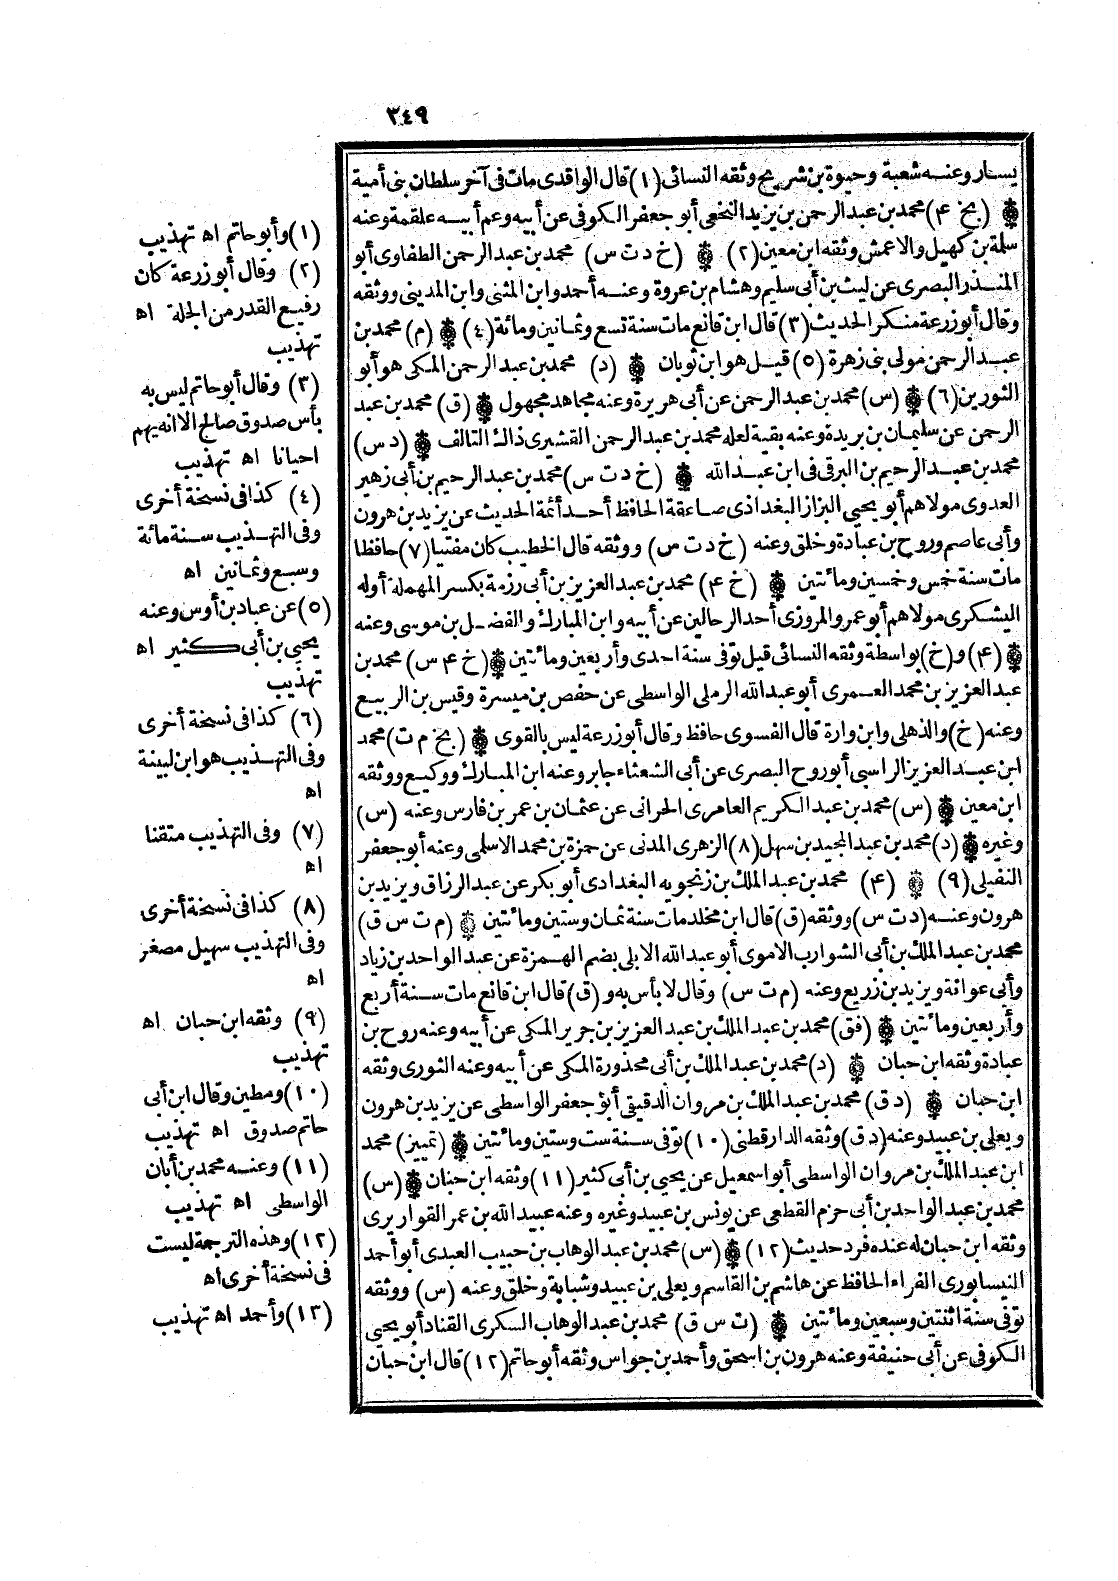 ٣٤٩
يسار وعنه شعبة وحيوة بن شريح وثقه النسائى (١) قال الواقدى مات فى آخر سلطان بنى أمية
(بخ ٤) محمد بن عبد الرحمن بن يزيد النخعى أبو جعفر الكوفى عن أبيه وعم أبيه علقمة وعنه
سلمة بن كهيل والاعمش وثقه ابن معين (٢) (خ د ت س) محمد بن عبد الرحمن الطفاوى أبو
المنذر البصرى عن ليث بن أبى سليم وهشام بن عروة وعنه أحمد وابن المثنى وابن المدينى ووثقه
وقال أبو زرعة منكر الحديث (٣) قال ابن قانع مات سنة تسع وثمانين ومائة (٤) (م) محمد بن
عبد الرحمن مولى بنى زهرة (٥) قيل هو ابن ثوبان (د) محمد بن عبد الرحمن المكى هو أبو
الثورين (٦) (س) محمد بن عبد الرحمن عن أبى هريرة وعنه مجاهد مجهول (ق) محمد بن عبد
الرحمن عن سليمان بن بريدة وعنه بقية لعله محمد بن عبد الرحمن القشيرى ذاك التالف (د س)
محمد بن عبد الرحيم بن البرقى فى ابن عبد الله (خ د ت س) محمد بن عبد الرحيم بن أبى زهير
العدوى مولاهم أبو يحيى البزاز البغدادى صاعقة الحافظ أحد أئمة الحديث عن يزيد بن هرون
وأبى عاصم وروح بن عبادة وخلق وعنه (خ د ت س) ووثقه قال الخطيب كان مفتيا (٧) حافظا
مات سنة خمس وخمسين ومائتين (خ ٤) محمد بن عبد العزيز بن أبى رزمة بكسر المهملة أوله
اليشكرى مولاهم أبو عمرو المروزى أحد الرحالين عن أبيه وابن المبارك والفضل بن موسى وعنه
(٤) و (خ) بواسطة وثقه النسائى قيل توفى سنة احدى وأربعين ومائتين (خ ٤ س) محمد بن
عبد العزيز بن محمد العمرى أبو عبد الله الرملى الواسطى عن حفص بن ميسرة وقيس بن الربيع
وعنه (خ) والذهلى وابن وارة قال الفسوى حافظ وقال أبو زرعة ليس بالقوى (بخ م ت) محمد
ابن عبد العزيز الراسبى أبو روح البصرى عن أبى الشعثاء جابر وعنه ابن المبارك ووكيع ووثقه
ابن معين (س) محمد بن عبد الكريم العامرى الحرانى عن عثمان بن عمر بن فارس وعنه (س)
وغيره (د) محمد بن عبد المجيد بن سهل (٨) الزهرى المدنى عن حمزة بن محمد الاسلمى وعنه أبو جعفر
النفيلى (٩) (٤) محمد بن عبد الملك بن زنجويه البغدادى أبو بكر عن عبد الرزاق ويزيد بن
هرون وعنه (د ت س) ووثقه (ق) قال ابن مخلد مات سنة ثمان وستين ومائتين (م ت س ق)
محمد بن عبد الملك بن أبى الشوارب الاموى أبو عبد الله الابلى بضم الهمزة عن عبد الواحد بن زياد
وأبى عوانة ويزيد بن زريع وعنه (م ت س) وقال لا بأس به و (ق) قال ابن قانع مات سنة أربع
وأربعين ومائتين (فق) محمد بن عبد الملك بن عبد العزيز بن جرير المكى عن أبيه وعنه روح بن
عبادة وثقه ابن حبان (د) محمد بن عبد الملك بن أبى محذورة المكى عن أبيه وعنه الثورى وثقه
ابن حبان (د ق) محمد بن عبد الملك بن مروان الدقيقى أبو جعفر الواسطى عن يزيد بن هرون
ويعلى بن عبيد وعنه (د ق) وثقه الدارقطنى (١٠) توفى سنة ست وستين ومائتين (تمييز) محمد
ابن عبد الملك بن مروان الواسطى أبو اسمعيل عن يحيى بن أبى كثير (١١) وثقه ابن حبان (س)
محمد بن عبد الواحد بن أبى حزم القطعى عن يونس بن عبيد وغيره وعنه عبيد الله بن عمر القواريرى
وثقه ابن حبان له عنده فرد حديث (١٢) (س) محمد بن عبد الوهاب بن حبيب العبدى أبو أحمد
النيسابورى الفراء الحافظ عن هاشم بن القاسم ويعلى بن عبيد وشبابة وخلق وعنه (س) ووثقه
توفى سنة اثنتين وسبعين ومائتين (ت س ق) محمد بن عبد الوهاب السكرى القناد أبو يحيى
الكوفى عن أبى حنيفة وعنه هرون بن اسحق وأحمد بن جواس وثقه أبو حاتم (١٢) قال ابن حبان
(١) وأبو حاتم اه تهذيب
(٢) وقال أبو زرعة كان
رفيع القدر من الجلة اه
تهذيب
(٣) وقال أبو حاتم ليس به
بأس صدوق صالح الا انه يهم
احيانا اه تهذيب
(٤) كذا فى نسخة أخرى
وفى التهذيب سنة مائة
وسبع وثمانين اه
(٥) عن عباد بن أوس وعنه
يحيى بن أبى كثير اه
تهذيب
(٦) كذا فى نسخة أخرى
وفى التهذيب هو ابن لبينة
اه
(٧) وفى التهذيب متقنا
اه
(٨) كذا فى نسخة أخرى
وفى التهذيب سهيل مصغر
اه
(٩) وثقه ابن حبان اه
تهذيب
(١٠) ومطين وقال ابن أبى
حاتم صدوق اه تهذيب
(١١) وعنه محمد بن أبان
الواسطى اه تهذيب
(١٢) وهذه الترجمة ليست
فى نسخة أخرى اه
(١٣) وأحمد اه تهذيب